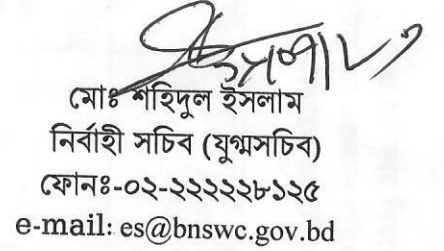 মোঃ শহিদুল ইসলাম
নির্বাহী সচিব (যুগ্মসচিব)
ফোনঃ-০২-২২২২২৮১২৫
e-mail: es@bnswc.gov.bd